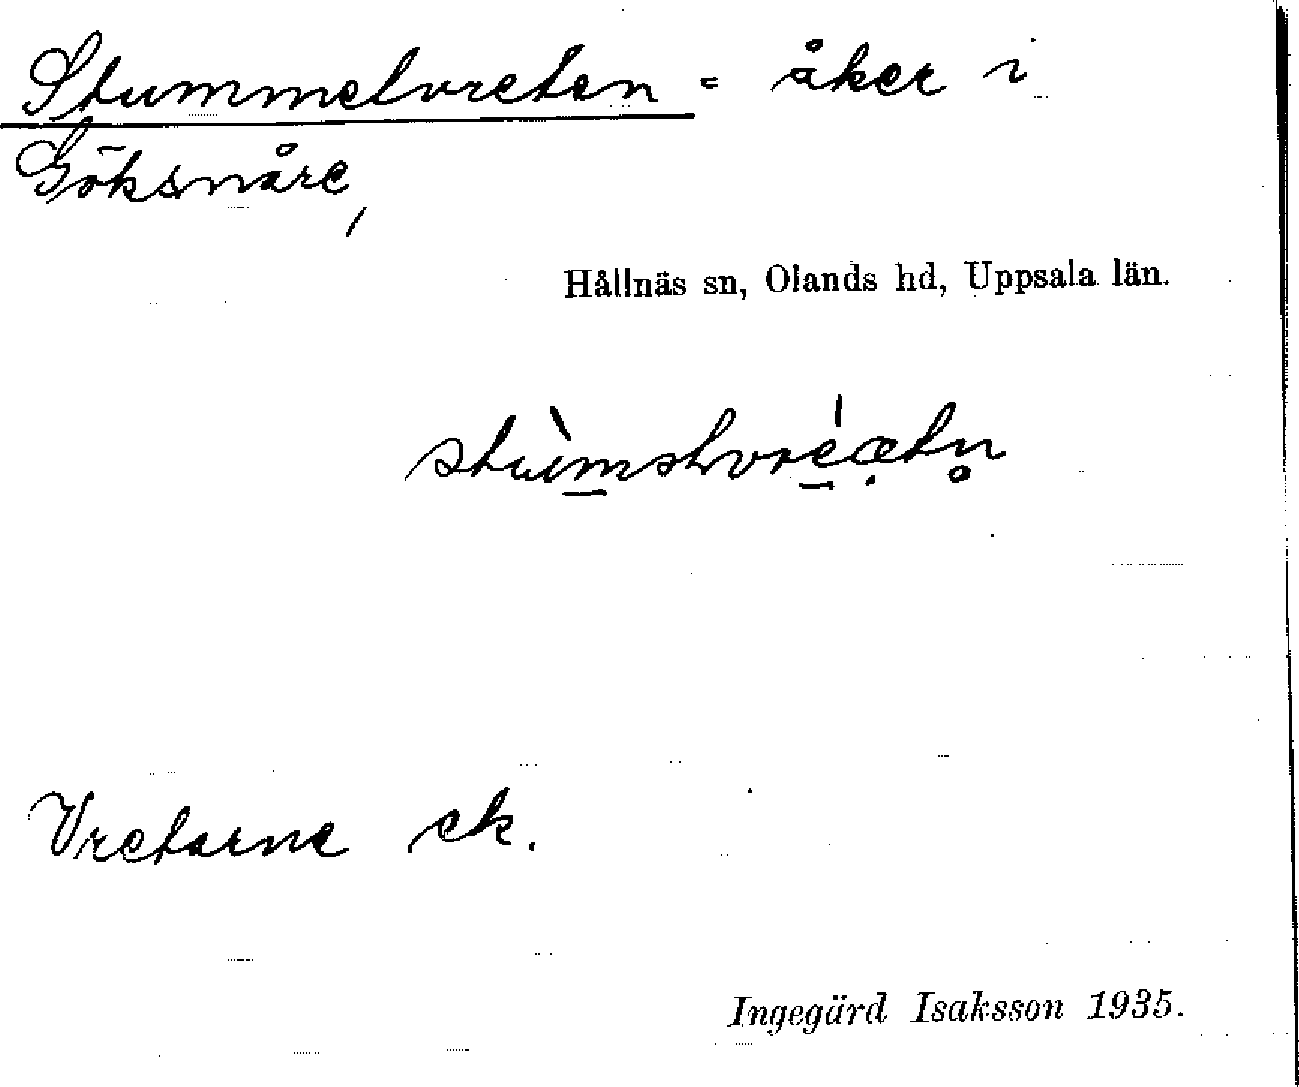 Stummelvreten = åker i
Göksnåre,
Hållnäs sn, Olands hd, Uppsala län.
Vretarne ek.
Ingegärd Isaksson 1935.